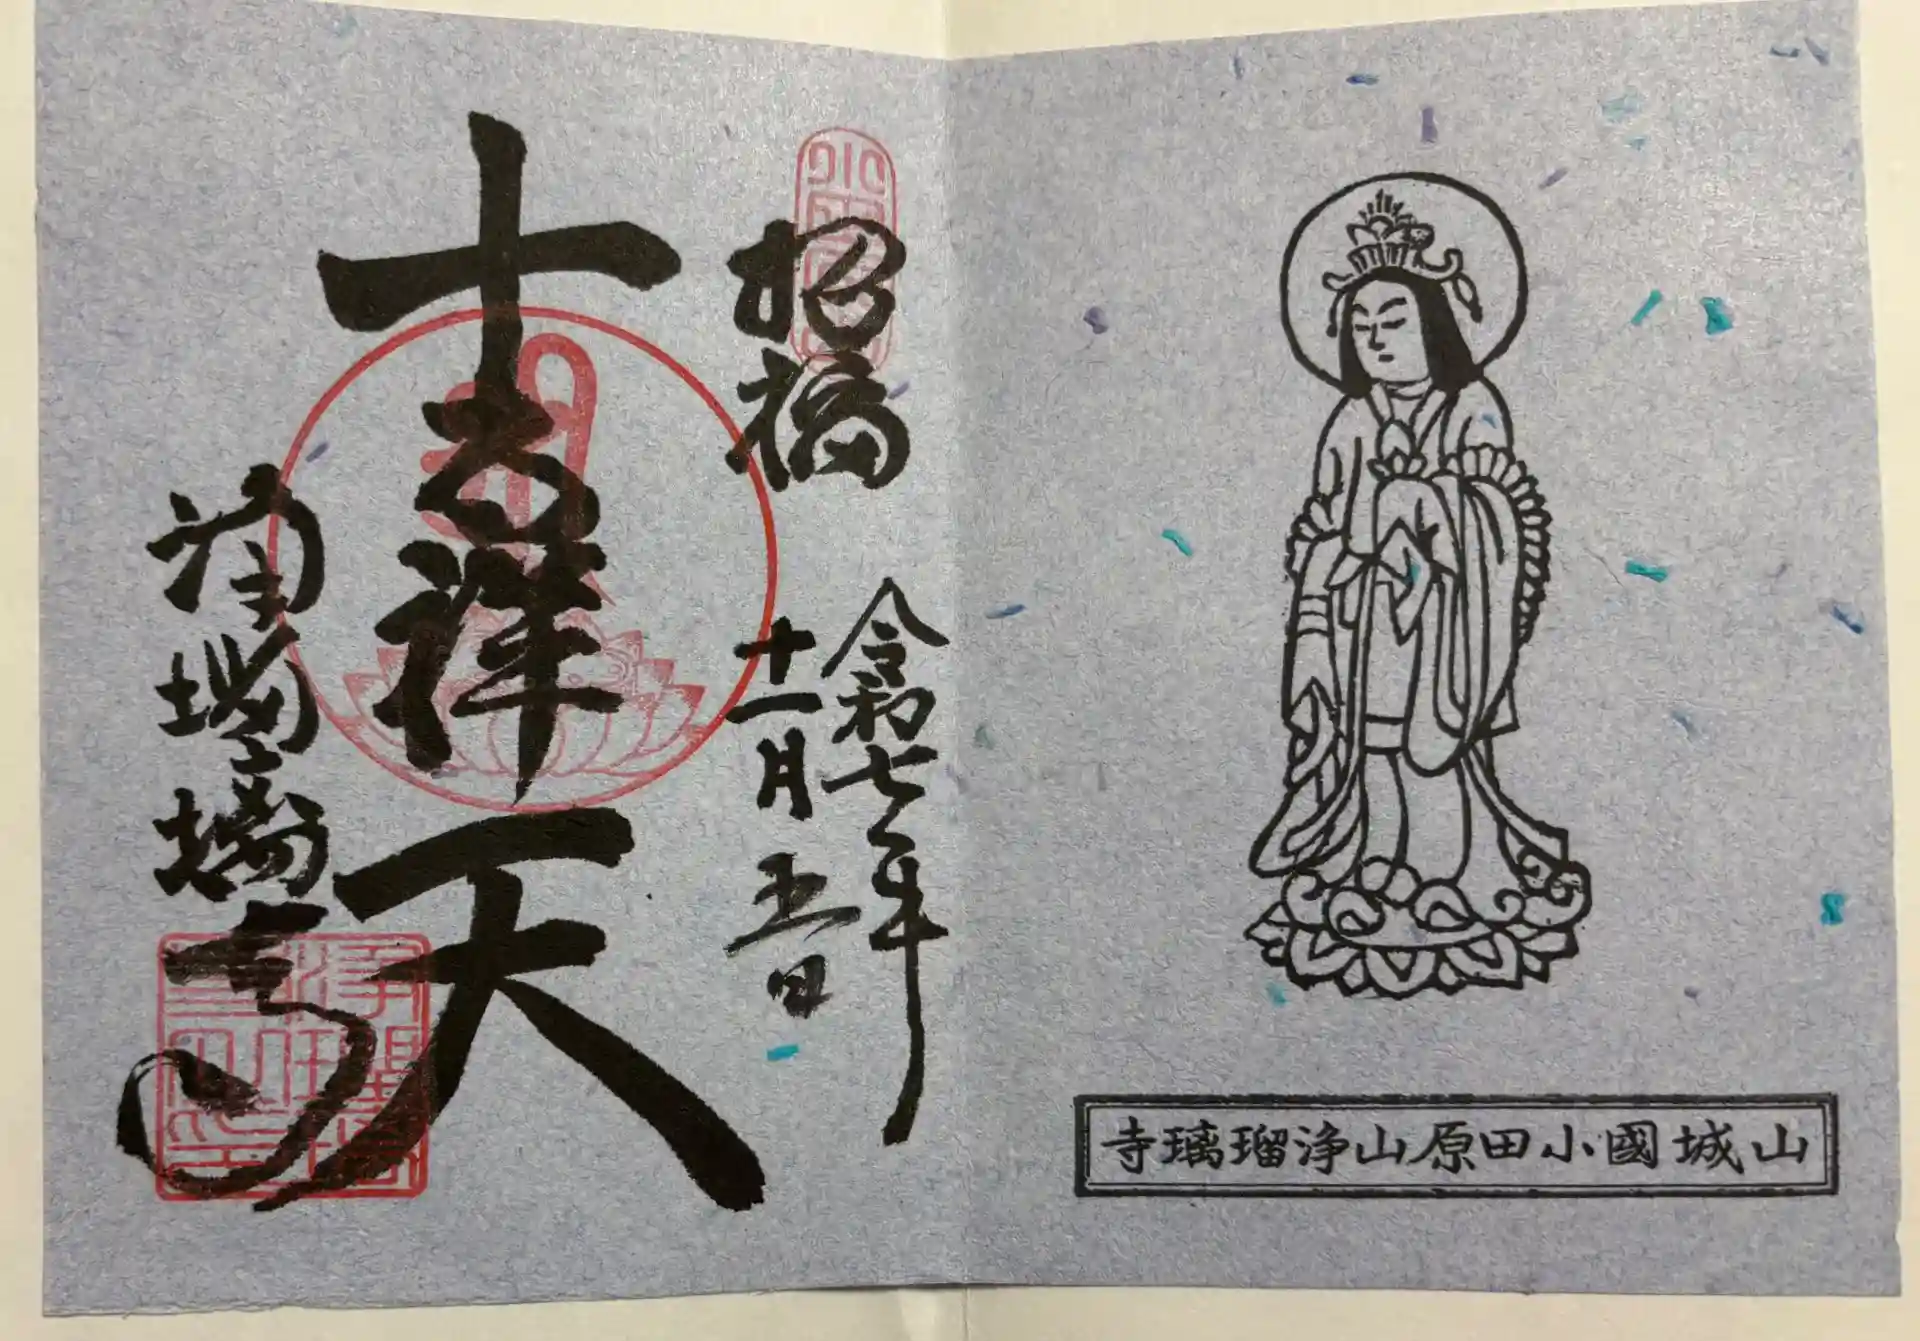 山城國小田原山浄瑠璃寺
招福
令和七年
十一月五日
吉祥天
浄瑠璃寺